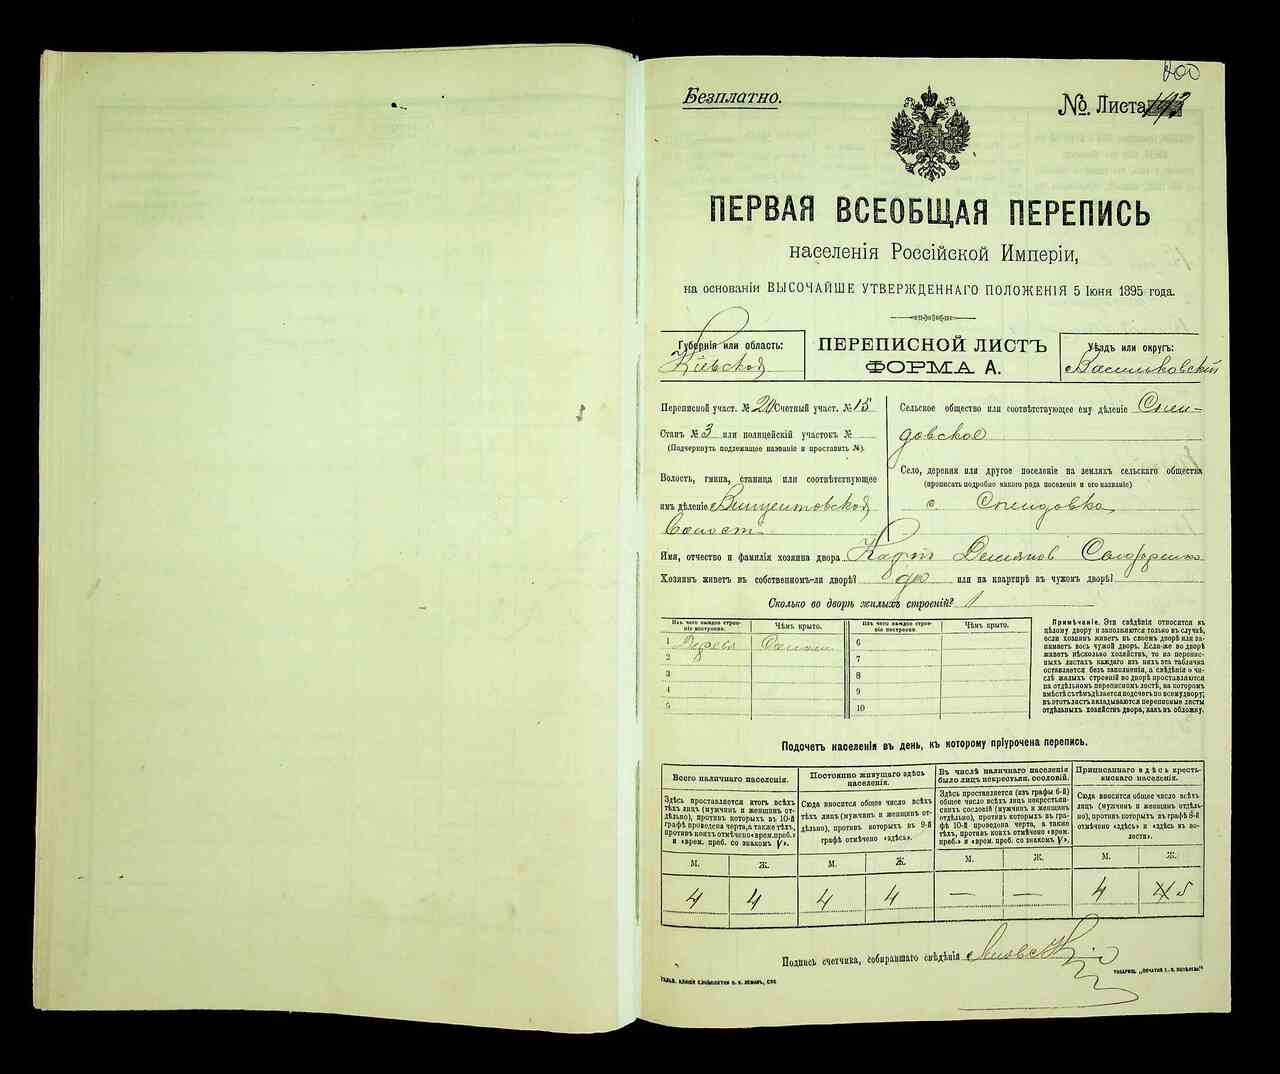 200
Безплатно.
№. Листа 143
ПЕРВАЯ ВСЕОБЩАЯ ПЕРЕПИСЬ
населенія Россійской Имперіи,
на основаніи ВЫСОЧАЙШЕ УТВЕРЖДЕННАГО ПОЛОЖЕНІЯ 5 Іюня 1895 года.
Губернія или область:
Кіевской
ПЕРЕПИСНОЙ ЛИСТЪ
ФОРМА А.
Уѣздъ или округъ:
Васильковскій
Переписной участ. № 20 Счетный участ. № 15
Станъ № 3 или полицейскій участокъ №
(Подчеркнуть подлежащее названіе и проставить №).
Волость, гмина, станица или соотвѣтствующее
имъ дѣленіе Винцентовской
Волости
Сельское общество или соотвѣтствующее ему дѣленіе Спен-
довское
Село, деревня или другое поселеніе на земляхъ сельскаго общества
(прописать подробно какого рода поселеніе и его названіе)
с. Спендовка
Имя, отчество и фамилія хозяина двора Карп Демянов
Хозяинъ живетъ въ собственномъ-ли дворѣ? да или на квартирѣ въ чужомъ дворѣ?
Сколько во дворѣ жилыхъ строеній? 1
Изъ чего каждое строе-
ніе построено.
Чѣмъ крыто.
Изъ чего каждое строе-
ніе построено.
Чѣмъ крыто.
1 Дерева Соломы 6
2 7
3 8
4 9
5 10
Примѣчаніе. Эти свѣдѣнія относятся къ
цѣлому двору и заполняются только въ случаѣ,
если хозяинъ живетъ въ своемъ дворѣ или за-
нимаетъ весь чужой дворъ. Если-же во дворѣ
живетъ нѣсколько хозяйствъ, то на перепис-
ныхъ листахъ каждаго изъ нихъ эта табличка
оставляется безъ заполненія, а свѣдѣнія о чи-
слѣ жилыхъ строеній во дворѣ проставляются
на отдѣльномъ переписномъ листѣ, на которомъ
вмѣстѣ съ тѣмъ дѣлается подсчетъ по всему двору;
въ этотъ листъ вкладываются переписные листы
отдѣльныхъ хозяйствъ двора, какъ въ обложку.
Подсчетъ населенія въ день, къ которому пріурочена перепись.
Всего наличнаго населенія.
Здѣсь проставляется итогъ всѣхъ
тѣхъ лицъ (мужчинъ и женщинъ от-
дѣльно), противъ которыхъ въ 10-й
графѣ проведена черта, а также тѣхъ,
противъ коихъ отмѣчено «врем. преб.»
и «врем. преб. со знакомъ V».
Постоянно живущаго здѣсь
населенія.
Сюда вносится общее число всѣхъ
тѣхъ лицъ (мужчинъ и женщинъ от-
дѣльно), противъ которыхъ въ 9-й
графѣ отмѣчено «здѣсь».
Въ числѣ наличнаго населенія
было лицъ некрестьян. сословій.
Здѣсь проставляется (изъ графы 6-й)
общее число всѣхъ лицъ некрестьян-
скихъ сословій (мужчинъ и женщинъ
отдѣльно), противъ которыхъ въ гра-
фѣ 10-й проведена черта, а также
тѣхъ, противъ коихъ отмѣчено «врем.
преб.» и «врем. преб. со знакомъ V».
Приписаннаго здѣсь кресть-
янскаго населенія.
Сюда вносится общее число всѣхъ
лицъ (мужчинъ и женщинъ отдѣль-
но), противъ которыхъ въ графѣ 8-й
отмѣчено «здѣсь» и «здѣсь въ во-
лости».
М. Ж. М. Ж. М. Ж. М. Ж.
4 4 4 4 — — 4 4 5
Подпись счетчика, собиравшаго свѣдѣнія